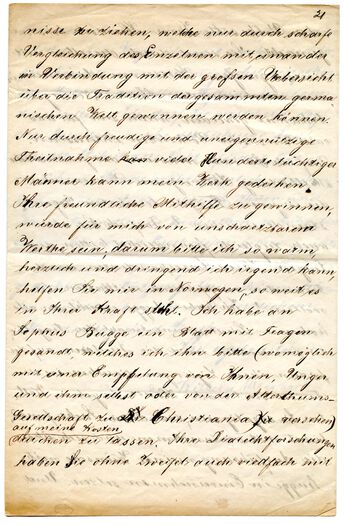 21
nisse zu ziehen, welche nur durch scharfe
Vergleichung des Einzelnen mit einander
in Verbindung mit der großen Uebersicht
über die Tradition der gesammten germa-
nischen Welt gewonnen werden können.
Nur durch freudige und uneigennützige
Theilnahme vieler Hunderte tüchtiger
Männer kann mein Werk gedeihen.
Ihre freundliche Mithilfe zu gewinnen,
würde für mich von unschätzbarem
Werthe sein, darum bitte ich so warm,
herzlich und dringend ich irgend kann,
helfen Sie mir in Norwegen, so weit es
in Ihrer Kraft steht. Ich habe an
Sophus Bugge ein Blatt mit Fragen
gesandt welches ich ihn bitte (womöglich
mit einer Empfelung von Ihnen, Unger
und ihm selbst oder von der Alterthums-
Gesellschaft zu Christiania versehen)
auf meine Kosten
drucken zu lassen. Ihre Dialectforschungen
haben Sie ohne Zweifel auch vielfach mit